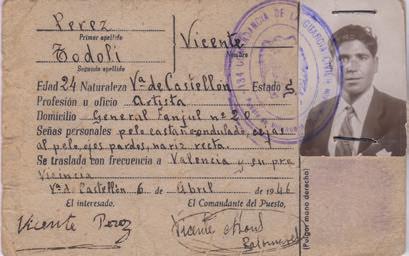 Perez
Primer apellido
Todolí
Segundo apellido
Vicente
Nombre
Edad 24 Naturaleza Vª de Castellón Estado S
Profesión u oficio Artista
Domicilio General Fanjul nº 20
Señas personales pelo castaño ondulado, cejas
al pelo, ojos pardos, nariz recta.
Se traslada con frecuencia a Valencia y su pro
vincia
Vª d. Castellón 6 de Abril de 1946
El interesado.
El Comandante del Puesto,
Vicente Perez
Vicente
(Pulgar mano derecha)
COMANDANCIA DE LA GUARDIA CIVIL